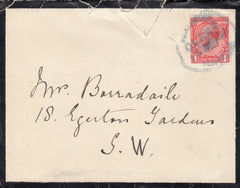 Mrs. Borradaile
18. Egerton Gardens
S. W.